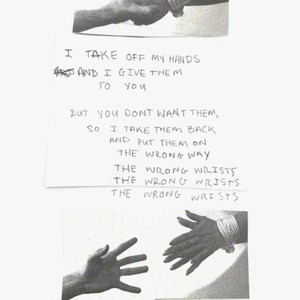 I TAKE OFF MY HANDS
AND I GIVE THEM
TO YOU
BUT YOU DONT WANT THEM,
SO I TAKE THEM BACK
AND PUT THEM ON
THE WRONG WAY
THE WRONG WRISTS
THE WRONG WRISTS
THE WRONG WRISTS